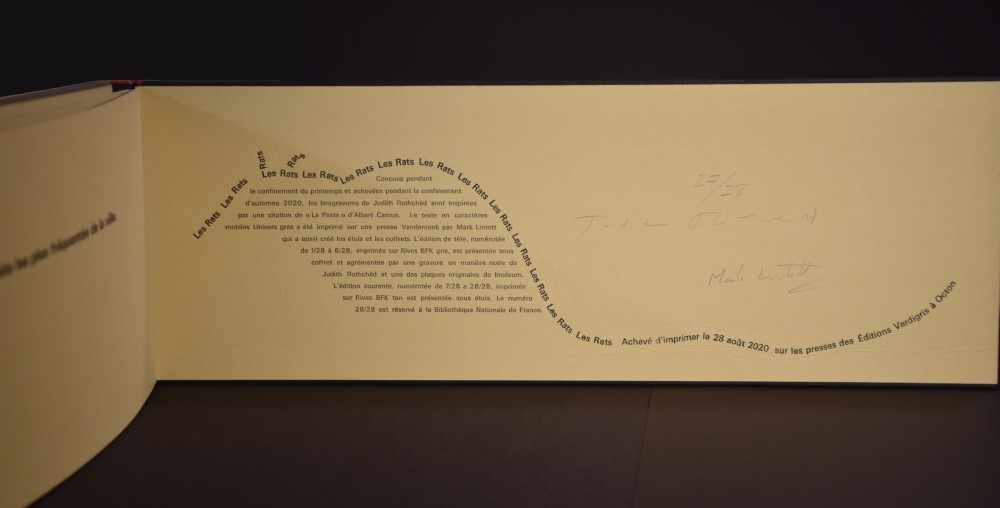 fréquentés de la ville
Les Rats Les Rats Rats Les Rats Rats Les Rats Les Rats Les Rats Les Rats Les Rats Les Rats Les Rats Les Rats Les Rats Les Rats Les Rats Achevé d'imprimer le 28 août 2020 sur les presses des Éditions Verdigris à Octon
Conçues pendant
le confinement du printemps et achevées pendant le confinement
d'automne 2020, les linogravures de Judith Rothchild sont inspirées
par une citation de « La Peste » d'Albert Camus. Le texte en caractères
mobiles Univers gras a été imprimé sur une presse Vandercook par Mark Lintott
qui a aussi créé les étuis et les coffrets. L'édition de tête, numérotée
de 1/28 à 6/28, imprimée sur Rives BFK gris, est présentée sous
coffret et agrémentée par une gravure en manière noire de
Judith Rothchild et une des plaques originales de linoleum.
L'édition courante, numérotée de 7/28 à 28/28, imprimée
sur Rives BFK tan est présentée sous étuis. Le numéro
28/28 est réservé à la Bibliothèque Nationale de France.
27/28
Mark Lintott